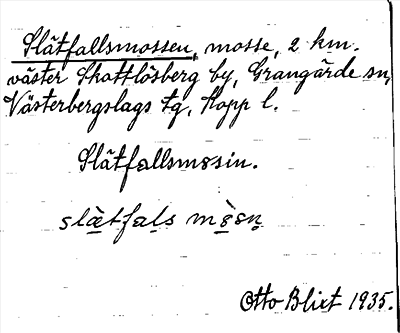 Slätfallsmossen, mosse, 2 km.
väster Skattlösberg by, Grangärde sn,
Västerbergslags tg, Kopp l.
Slätfallsmssin.
slætfaḷs mȯ̤sṇ
Otto Blixt 1935.